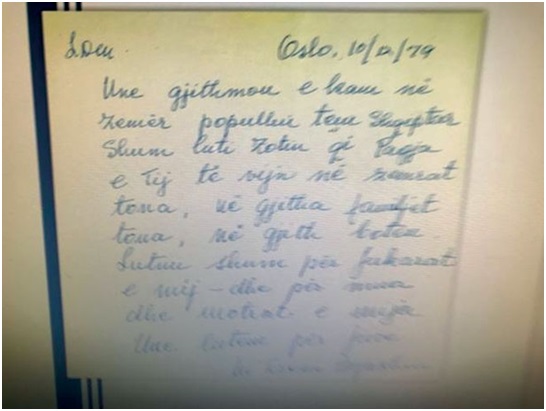 L.D.M. Oslo, 10/12/79
Une gjithmon e kam në
zemër popullin tem Shqiptar
Shum luti Zotin qi Paqja
e Tij të vijn në zemrat
tona, në gjitha familjet
tona, në gjith boten.
Lutuu shum për fukarat
e mij – dhe për mua
dhe motrat e mija
Une lutem për